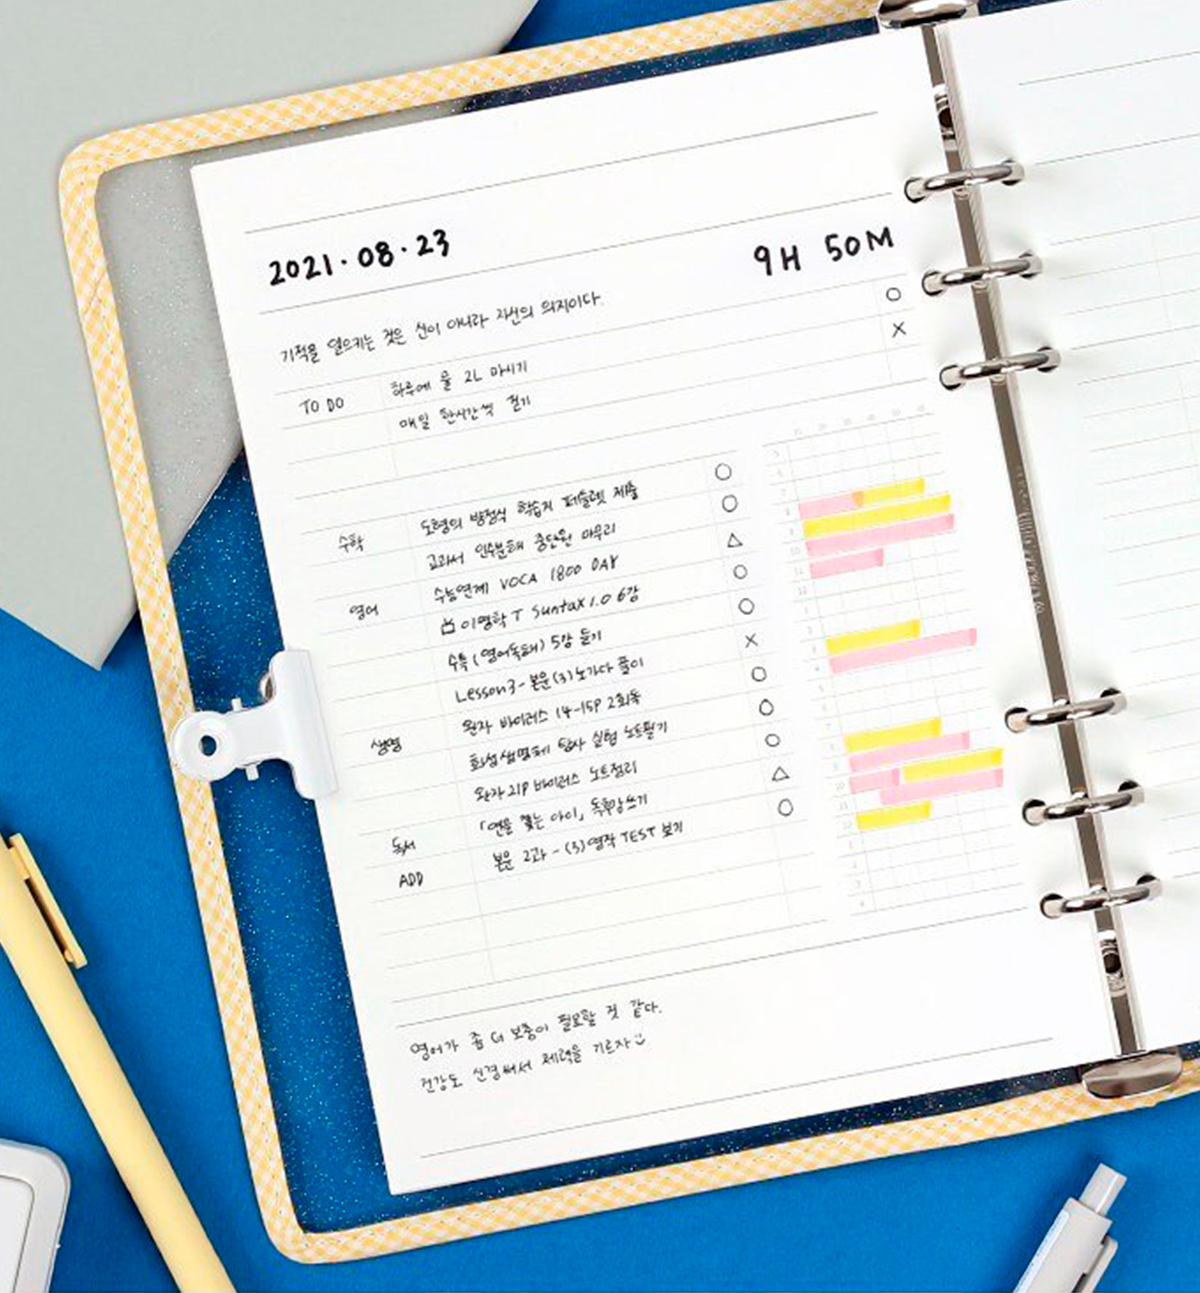 2021.08.23
9H 50M
기적을 일으키는 것은 신이 아니라 자신의 의지이다.
TO DO 하루에 물 2L 마시기 ○
매일 한시간씩 걷기 ×
수학 도형의 방정식 학습지 패들렛 제출 ○
교과서 인수분해 중단원 마무리 ○
영어 수능연계 VOCA 1800 DAY △
이명학T Suntax 1.0 6강 ○
수특(영어독해) 5강 듣기 ○
Lesson3 - 본문(3) 노가다 풀이 ×
생명 완자 바이러스 14-15P 2회독 ○
화성생명체 탐사 실험 노트필기 ○
완자 21P 바이러스 노트정리 ○
독서 「연을 쫓는 아이」 독후감쓰기 △
ADD 본문 2과 - (3) 영작 TEST 보기 ○
영어가 좀 더 보충이 필요할 것 같다.
건강도 신경써서 체력을 기르자